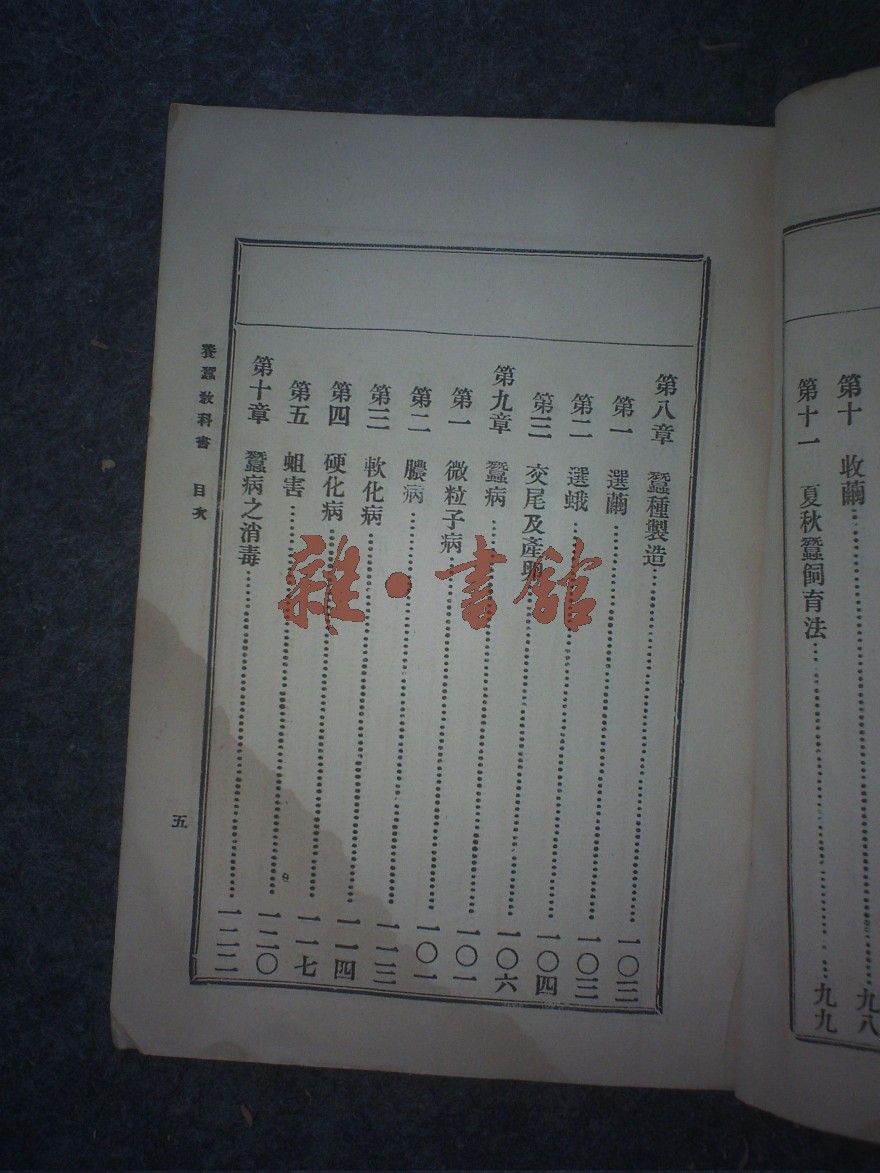 第十 收繭……九八
第十一 夏秋蠶飼育法……九九
第八章 蠶種製造……一〇三
第一 選繭……一〇三
第二 選蛾……一〇四
第三 交尾及產卵……一〇六
第九章 蠶病……一〇一
第一 微粒子病……一〇一
第二 膿病……一一三
第三 軟化病……一一四
第四 硬化病……一一七
第五 蛆害……一二〇
第十章 蠶病之消毒……一二二
養蠶教科書 目次
五
雜·書館